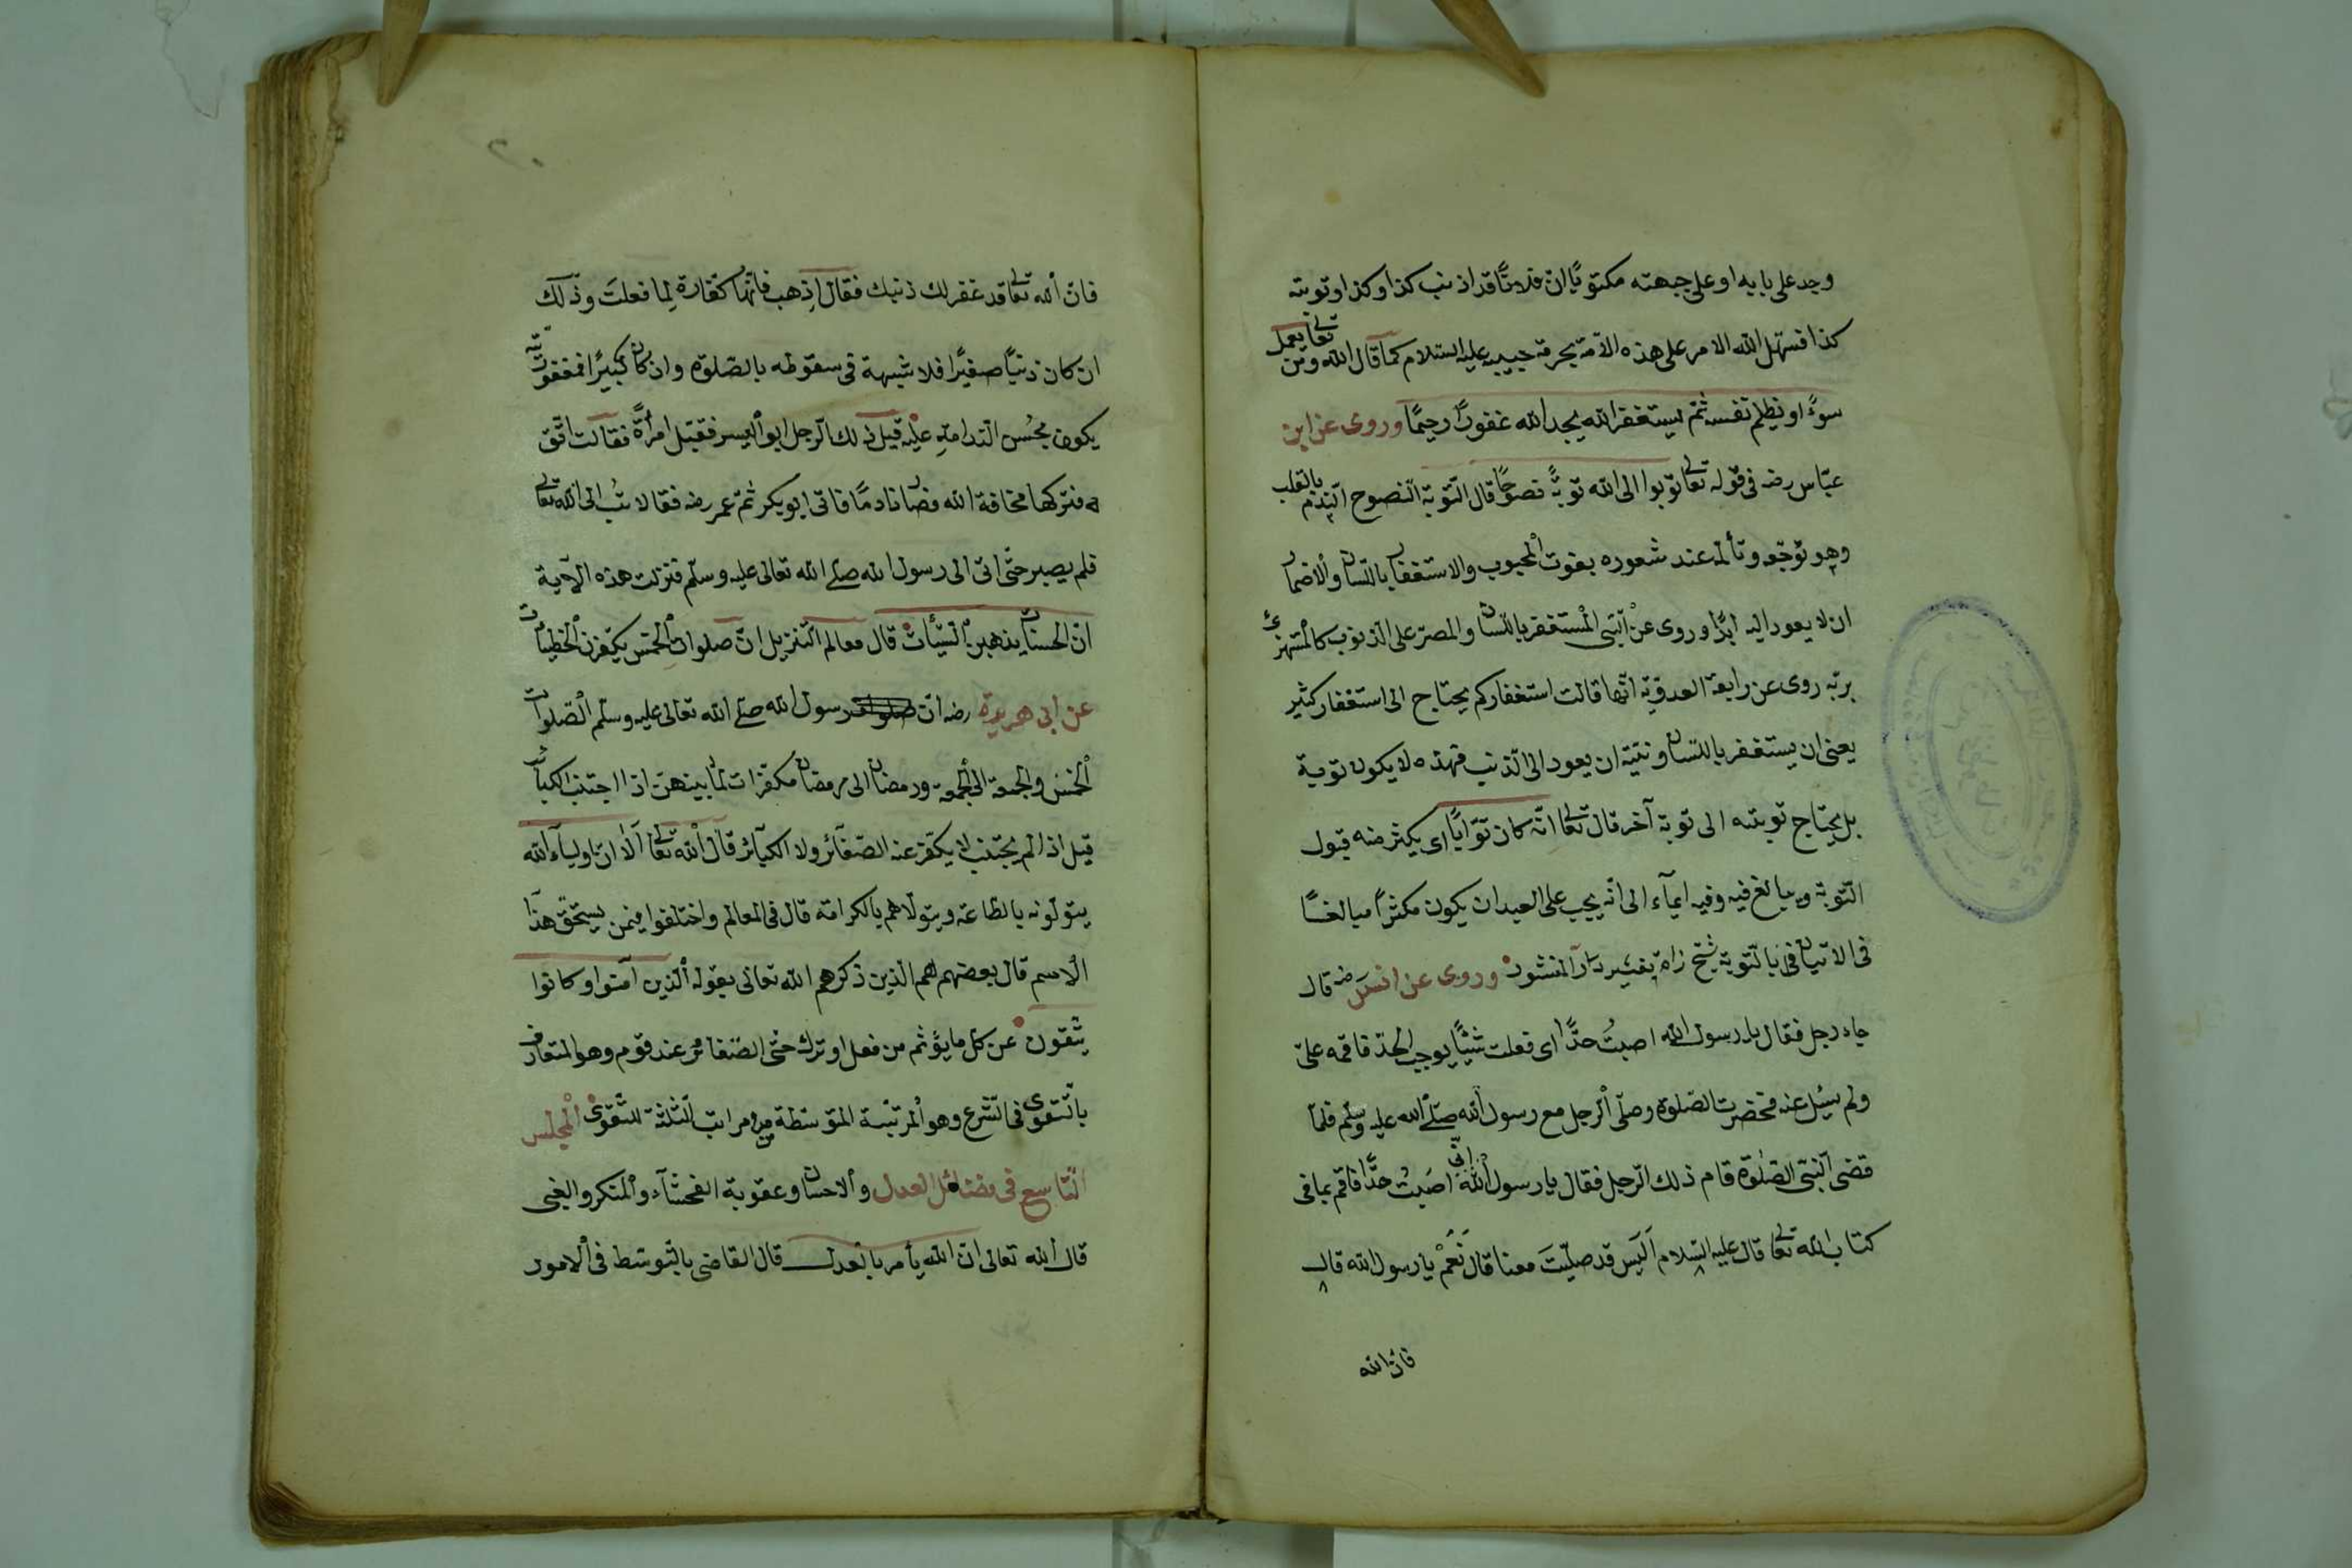 وجد على بابه او على جبهته مكتوبًا ان فلانًا قد اذنب كذا وكذا وتوبته
كذا فسهّل الله الامر على هذه الامّة بحرمة حبيبه عليه السّلام كما قال الله تعا ومن يعمل
سوءً او يظلم نفسه ثمّ يستغفر الله يجد الله غفورًا رحيمًا وروى عن ابن
عبّاس رضه فى قوله تعا توبوا الى الله توبةً نصوحًا قال التّوبة النّصوح النّدم بالقلب
وهو توجّع وتألّم عند شعوره بفوت المحبوب والاستغفار باللّسان والاضمار
ان لا يعود اليه ابدًا وروى عن النّبى المستغفر باللّسان والمصرّ على الذنوب كالمستهزئ
بربّه روى عن رابعة العدويّة انّها قالت استغفاركم يحتاج الى استغفار كثير
يعنى ان يستغفر باللّسان ونيّته ان يعود الى الذنب فهذه لا يكون توبة
بل يحتاج توبته الى توبة آخر قال تعا انّه كان توّابًا اى يكثر منه قبول
التّوبة ويبالغ فيه وفيه ايماء الى انّه يجب على العبد ان يكون مكثرًا مبالغًا
فى الاتيان بالتّوبة شيخ زاده وروى عن انس رضه قال
جاء رجل فقال يا رسول الله اصبتُ حدًّا اى فعلت شيئًا يوجب الحدّ فاقمه علىّ
ولم يسئل عنه فحضرت الصّلوة وصلّى الرجل مع رسول الله صلّى الله عليه وسلّم فلمّا
قضى النّبى الصّلوة قام ذلك الرّجل فقال يا رسول الله انّى اصبتُ حدًّا فاقم بما فى
كتاب الله تعا قال عليه السّلام أليس قد صلّيتَ معنا قال نَعَمْ يا رسول الله قال
فان الله
فان الله تعا قد غفر لك ذنبك فقال اِذهب فانّها كفّارة لِما فعلتَ وذلك
ان كان ذنبًا صغيرًا فلا شبهة فى سقوطه بالصّلوة وان كان كبيرًا فمغفورته
يكون بحُسن النّدامةِ عليه قيل ذلك الرّجل ابو اليسر فقبّل امرأةً فقالت اتّق
الله فتركها مخافة الله فصار نادمًا فاتى ابو بكر ثمّ عمر رضه فقالا تُب الى الله تعا
فلم يصبر حتّى اتى الى رسول الله صلّى الله تعالى عليه وسلّم فنزلت هذه الآية
انّ الحسنات يذهبن السّيّأت قال معالم التّنزيل انّ صلوات الخمس يكفّرن الخطيئات
عن ابى هريرة رضه ان رسول الله صلّى الله تعالى عليه وسلّم الصّلوات
الخمس والجمعة الى الجمعة ورمضان الى رمضان مكفّرات لما بينهنّ اذا اجتنب الكبائر
قيل اذا لم يجتنب لا يكفّر عنه الصّغائر ولا الكبائر قال الله تعا ألا انّ اولياء الله
يتولّونه بالطّاعة ويتولّاهم بالكرامة قال فى المعالم واختلفوا فيمن يستحقّ هذا
الاسم قال بعضهم هم الذين ذكرهم الله تعالى بقوله الّذين آمنوا وكانوا
يتّقون عن كلّ ما يؤثم من فعل او ترك حتّى الصّغائر عند قوم وهو المتعارف
بالتّقوى فى الشّرع وهو المرتبة المتوسّطة من مراتب الثّلثة للتّقوى المجلس
التّاسع فى فضائل العدل والاحسان وعقوبة الفحشاء والمنكر والبغى
قال الله تعالى ان الله يأمر بالعدل قال القاضى بالتّوسّط فى الامور